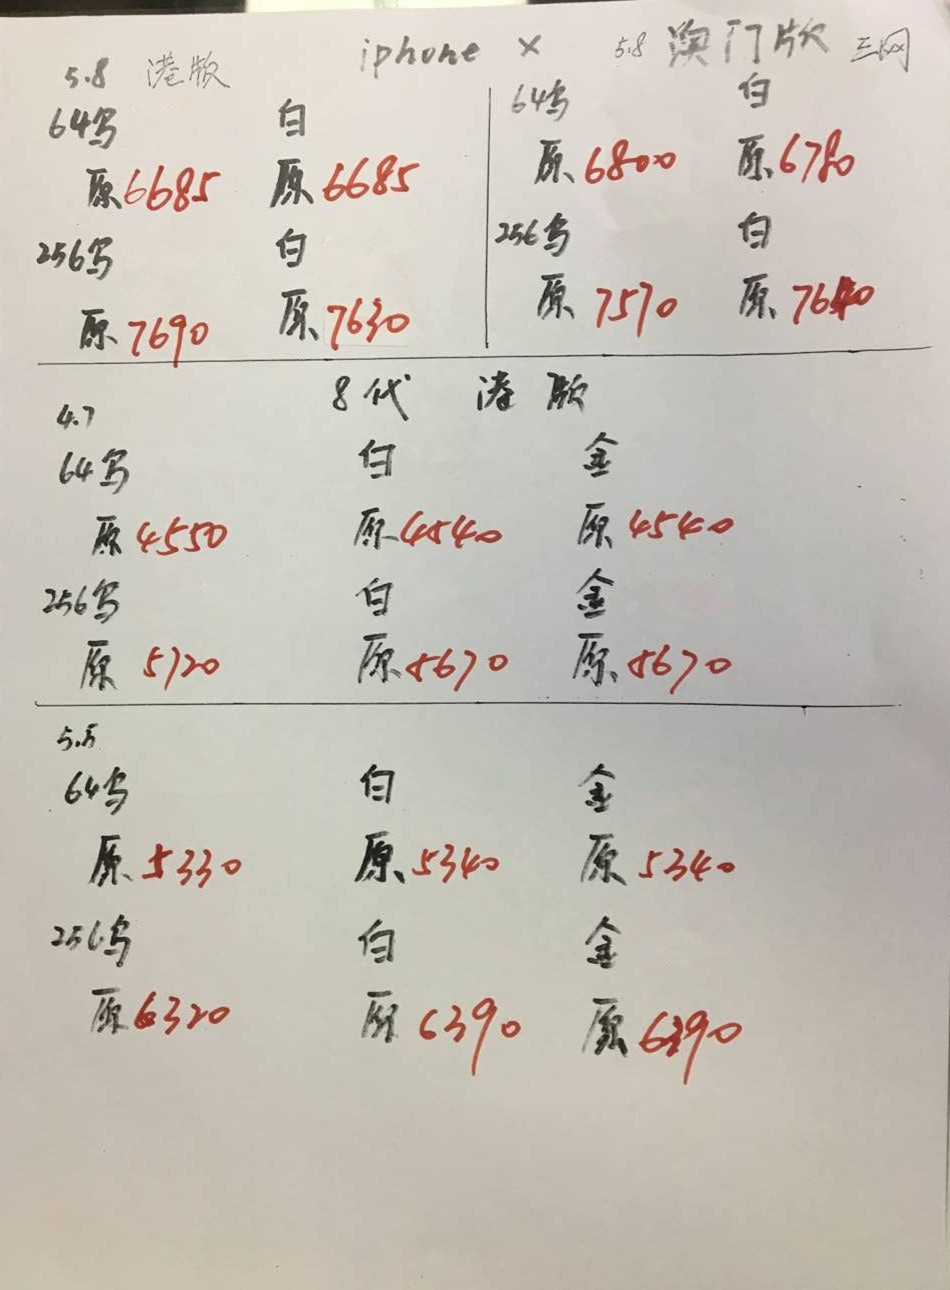 iphone X
5.8 港版
5.8 澳门版 三网
64乌 白
原6685 原6685
256乌 白
原7690 原7630
64乌 白
原6800 原6780
256乌 白
原7570 原7640
8代 港版
4.7
64乌 白 金
原4550 原4540 原4540
256乌 白 金
原5720 原5670 原5670
5.5
64乌 白 金
原5330 原5340 原5340
256乌 白 金
原6320 原6390 原6390